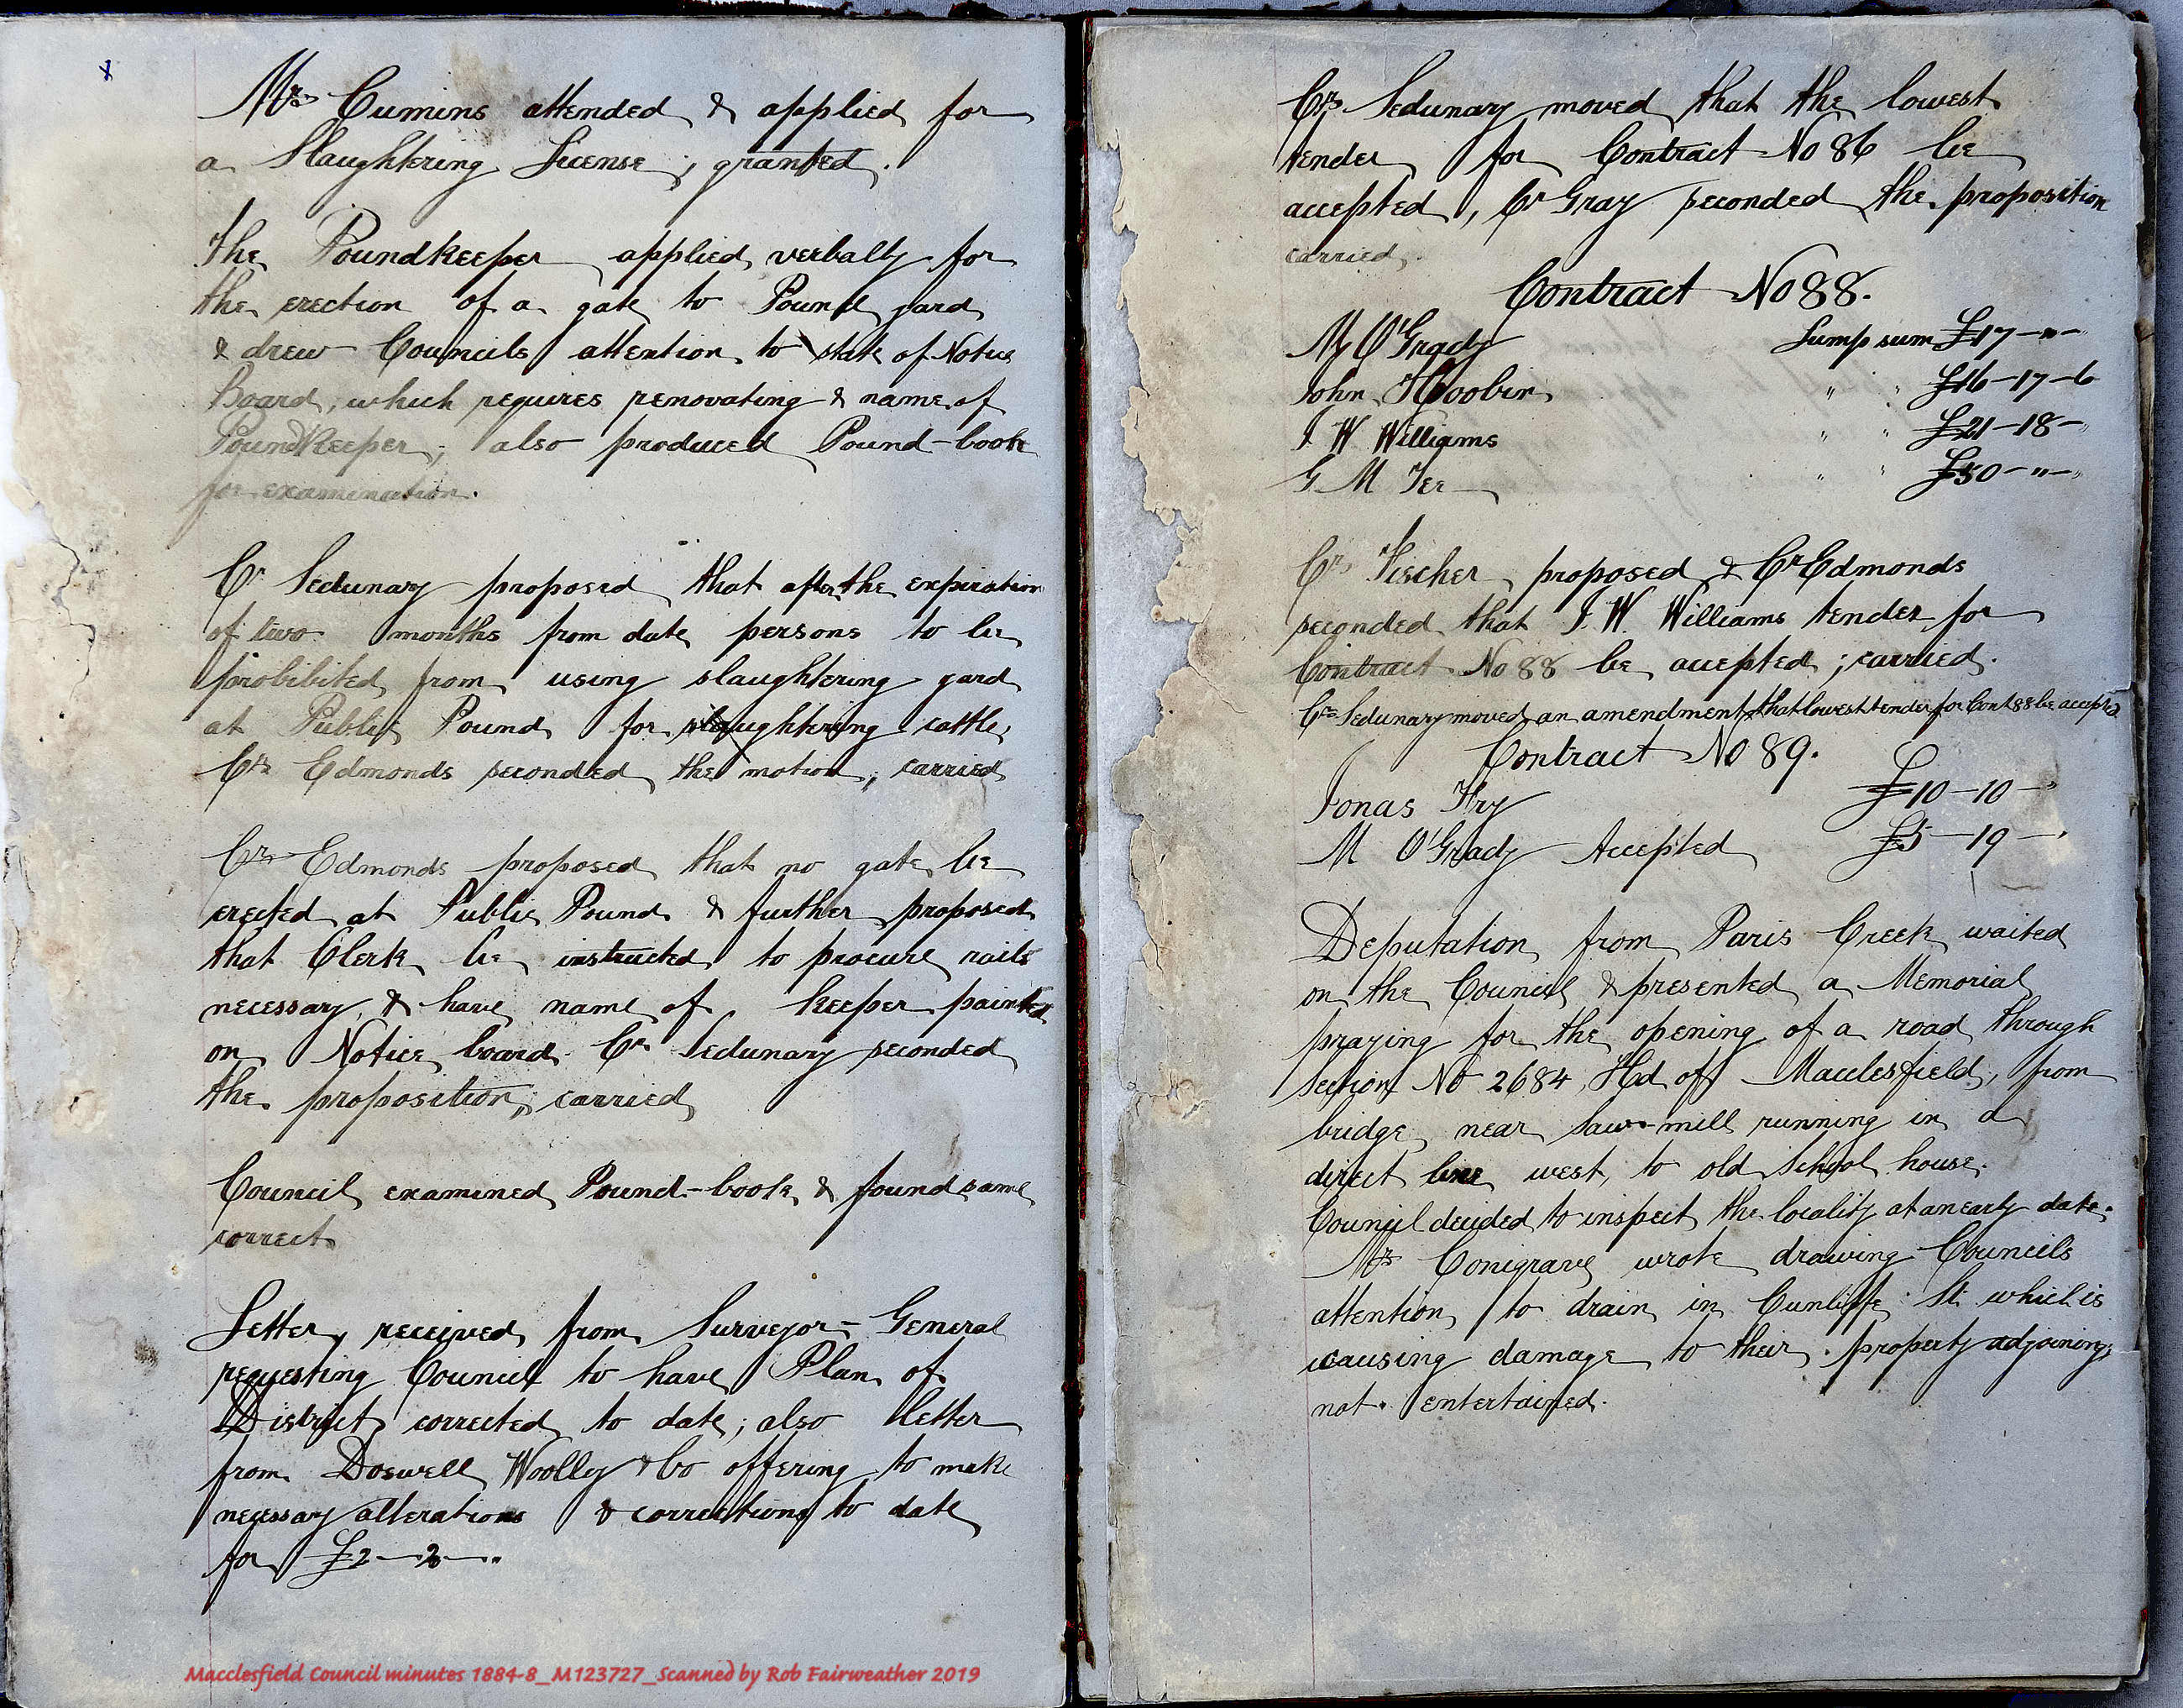 Mrs Cumins attended & applied for
a Slaughtering License, granted.
The Poundkeeper applied verbally for
the erection of a gate to Pound yard
& drew Councils attention to state of Notice
Board, which requires renovating & name of
Poundkeeper; also produced Pound-book
for examination.
Cr Sedunary proposed that after the expiration
of two months from date persons to be
prohibited from using slaughtering yard
at Public Pound for slaughtering cattle,
Cr Edmonds seconded the motion, carried
Cr Edmonds proposed that no gate be
erected at Public Pound & further proposed
that Clerk be instructed to procure rails
necessary, & have name of keeper painted
on Notice board. Cr Sedunary seconded
the proposition, carried
Council examined Pound-book & found same
correct
Letter received from Surveyor-General
requesting Council to have Plan of
District corrected to date; also letter
from Doswell Woolly & Co offering to make
necessary alterations & corrections to date
for £2-2-"
Macclesfield Council minutes 1884-8_M123727_Scanned by Rob Fairweather 2019
Cr Sedunary moved that the lowest
tender for Contract No 86 be
accepted, Cr Gray seconded the proposition
carried.
Contract No 88.
M O'Grady Lump sum £17-"-"
John Hoobin " " £16-17-6
J W Williams " " £21-18-"
G M Tee " " £50-"-"
Cr Fischer proposed & Cr Edmonds
seconded that J. W. Williams tender for
Contract No 88 be accepted; carried.
Cr Sedunary moved an amendment that lowest tender for Cont 88 be accepted
Contract No 89.
Jonas Fry £10-10-"
M O'Grady Accepted £5-19-"
Deputation from Paris Creek waited
on the Council & presented a Memorial
praying for the opening of a road through
Section No 2684, Hd of Macclesfield, from
bridge near Saw-mill running in a
direct line west, to old School house.
Council decided to inspect the locality at an early date.
Mr Conigrave wrote drawing Councils
attention to drain in Cunliffe St which is
causing damage to their property adjoining,
not entertained.